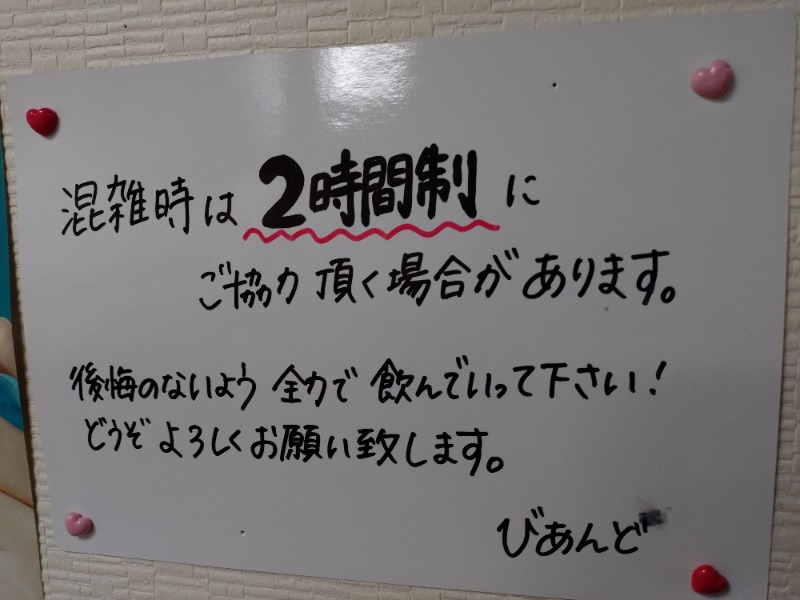 混雑時は2時間制に
ご協力頂く場合があります。
後悔のないよう全力で飲んでいって下さい!
どうぞよろしくお願い致します。
びあんど